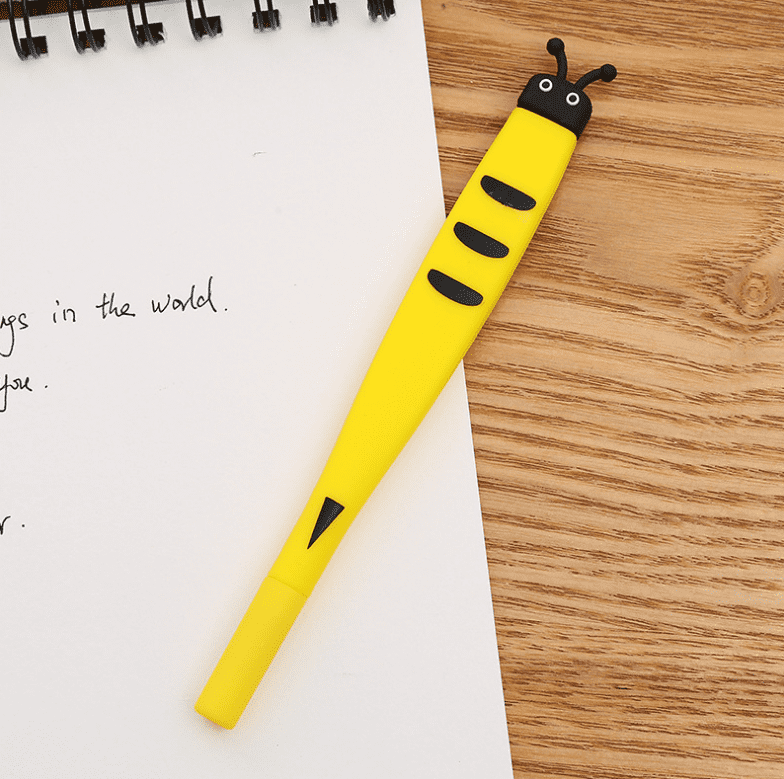 in the world.
you.